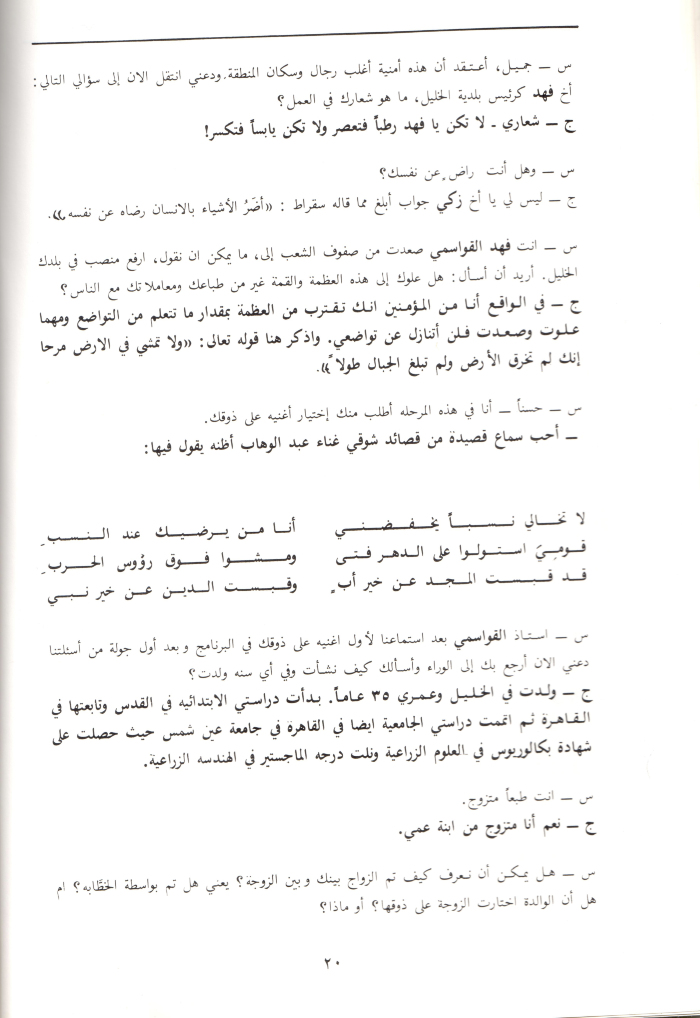 س — جميل، أعتقد أن هذه أمنية أغلب رجال وسكان المنطقة. ودعني انتقل الان إلى سؤالي التالي:
أخ فهد كرئيس بلدية الخليل، ما هو شعارك في العمل؟
ج — شعاري ـ لا تكن يا فهد رطباً فتعصر ولا تكن يابساً فتكسر!
س — وهل أنت راضٍ عن نفسك؟
ج — ليس لي يا أخ زكي جواب أبلغ مما قاله سقراط : «أضَرُ الأشياء بالانسان رضاه عن نفسه».
س — انت فهد القواسمي صعدت من صفوف الشعب إلى، ما يمكن ان نقول، ارفع منصب في بلدك
الخليل. أريد أن أسأل: هل علوك إلى هذه العظمة والقمة غير من طباعك ومعاملاتك مع الناس؟
ج — في الواقع أنا من المؤمنين انك تقترب من العظمة بمقدار ما تتعلم من التواضع ومهما
علوت وصعدت فلن أتنازل عن تواضعي. واذكر هنا قوله تعالى: «ولا تمشي في الارض مرحا
إنك لم تخرق الأرض ولم تبلغ الجبال طولاً».
س — حسناً — أنا في هذه المرحله أطلب منك إختيار أغنيه على ذوقك.
— أحب سماع قصيدة من قصائد شوقي غناء عبد الوهاب أظنه يقول فيها:
لا تخالي نسباً يخفضني أنا من يرضيك عند النسبِ
قوميَ استولوا على الدهر فتى ومشوا فوق رؤوس الحربِ
قد قبست المجد عن خير أبٍ وقبست الدين عن خير نبي
س — استاذ القواسمي بعد استماعنا لأول اغنيه على ذوقك في البرنامج وبعد أول جولة من أسئلتنا
دعني الان أرجع بك إلى الوراء وأسألك كيف نشأت وفي أي سنه ولدت؟
ج — ولدت في الخليل وعمري ٣٥ عاماً. بدأت دراستي الابتدائيه في القدس وتابعتها في
القاهرة ثم اتممت دراستي الجامعية ايضا في القاهرة في جامعة عين شمس حيث حصلت على
شهادة بكالوريوس في العلوم الزراعية ونلت درجه الماجستير في الهندسه الزراعية.
س — انت طبعاً متزوج.
ج — نعم أنا متزوج من ابنة عمي.
س — هل يمكن أن نعرف كيف تم الزواج بينك وبين الزوجة؟ يعني هل تم بواسطة الخطَّابه؟ ام
هل أن الوالدة اختارت الزوجة على ذوقها؟ أو ماذا؟
٢٠